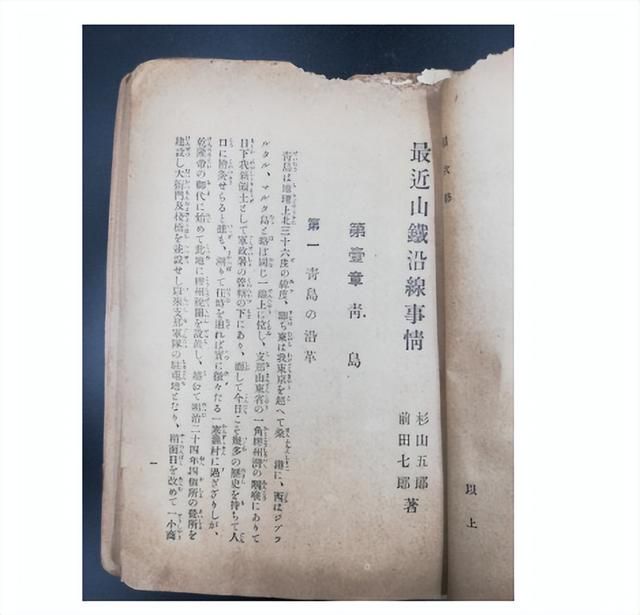 以上
最近山鐵沿線事情
杉山五郎
前田七郎 著
第壹章 靑島
第一 靑島の沿革
靑島は地理上北三十六度の緯度、卽ち東は我東京を超へて桑港に、西はジブラ
ルタル、マルタ島と略ぼ同じ一線上に位し、支那山東省の一角膠州灣の咽喉にありて
目下我新領土として軍政署の管轄の下にあり、而して今日こそ幾多の歷史を持ちて人
口に膾炙せらると雖も、溯りて往時を追れば實に微々たる一寒漁村に過ぎざりしが、
乾隆帝の御代に始めて此地に膠州稅關を設置し、越えて明治二十四年四個所の營所を
建設し大衙門及棧橋を建設せし以來支那軍隊の駐屯地となり、稍面目を改めて一小商
一